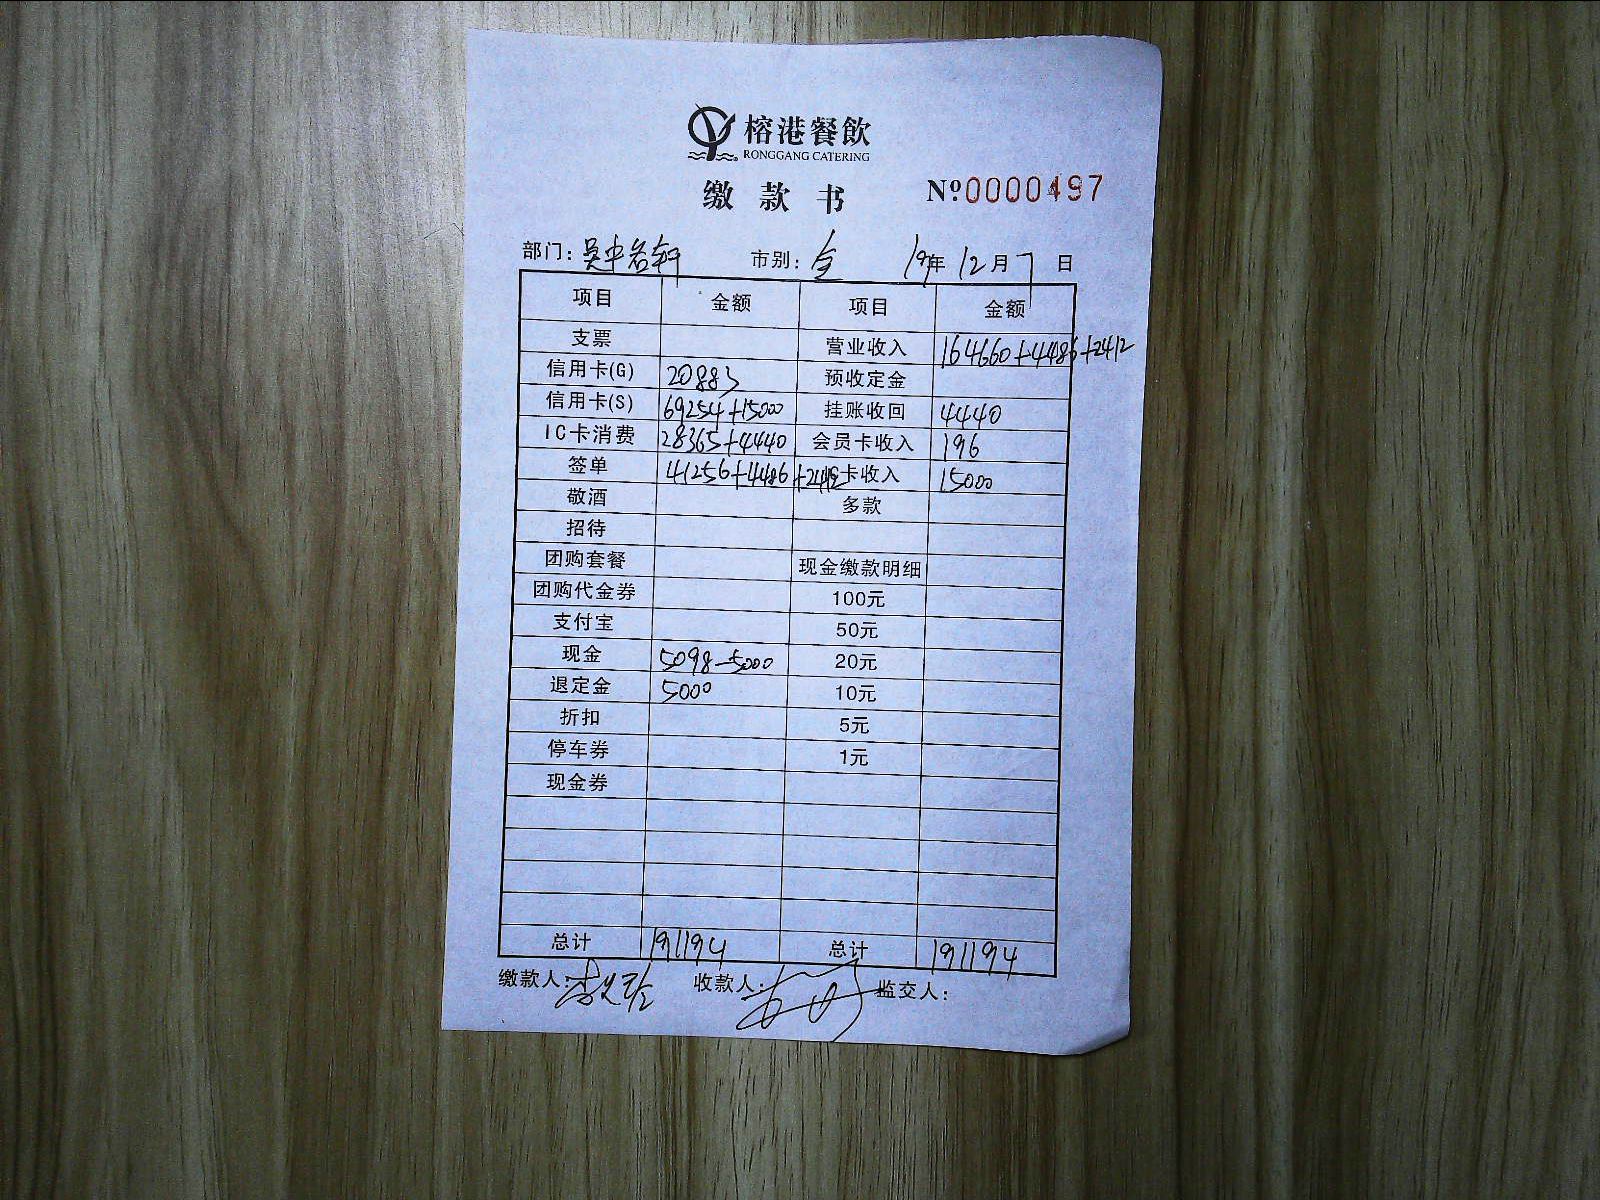 榕港餐飲
RONGGANG CATERING
缴款书 Nº0000497
部门：吴中名轩 市别：全 19年12月7日
项目 金额 项目 金额
支票 营业收入 164660+4486+2412
信用卡(G) 20883 预收定金
信用卡(S) 69254+15000 挂账收回 4440
IC卡消费 28365+4440 会员卡收入 196
签单 41256+4486+2412 卡收入 15000
敬酒 多款
招待
团购套餐 现金缴款明细
团购代金券 100元
支付宝 50元
现金 5098-5000 20元
退定金 5000 10元
折扣 5元
停车券 1元
现金券
总计 191194 总计 191194
缴款人： 收款人： 监交人：